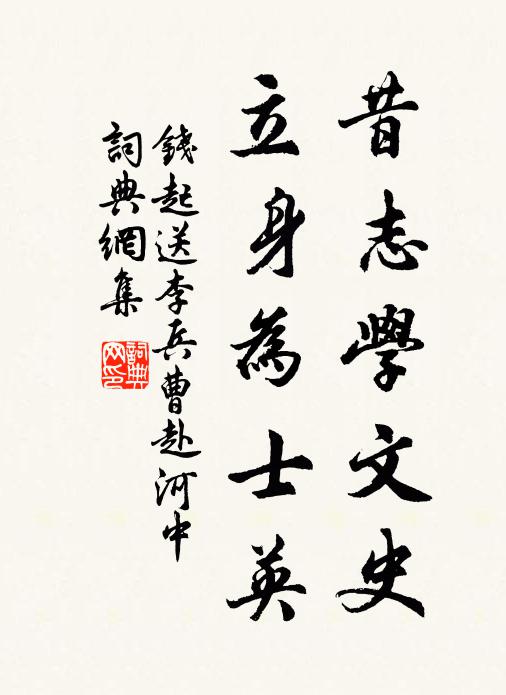 昔志學文史
立身為士英
錢起送李兵曹赴河中
詞典網集
詞典
网印